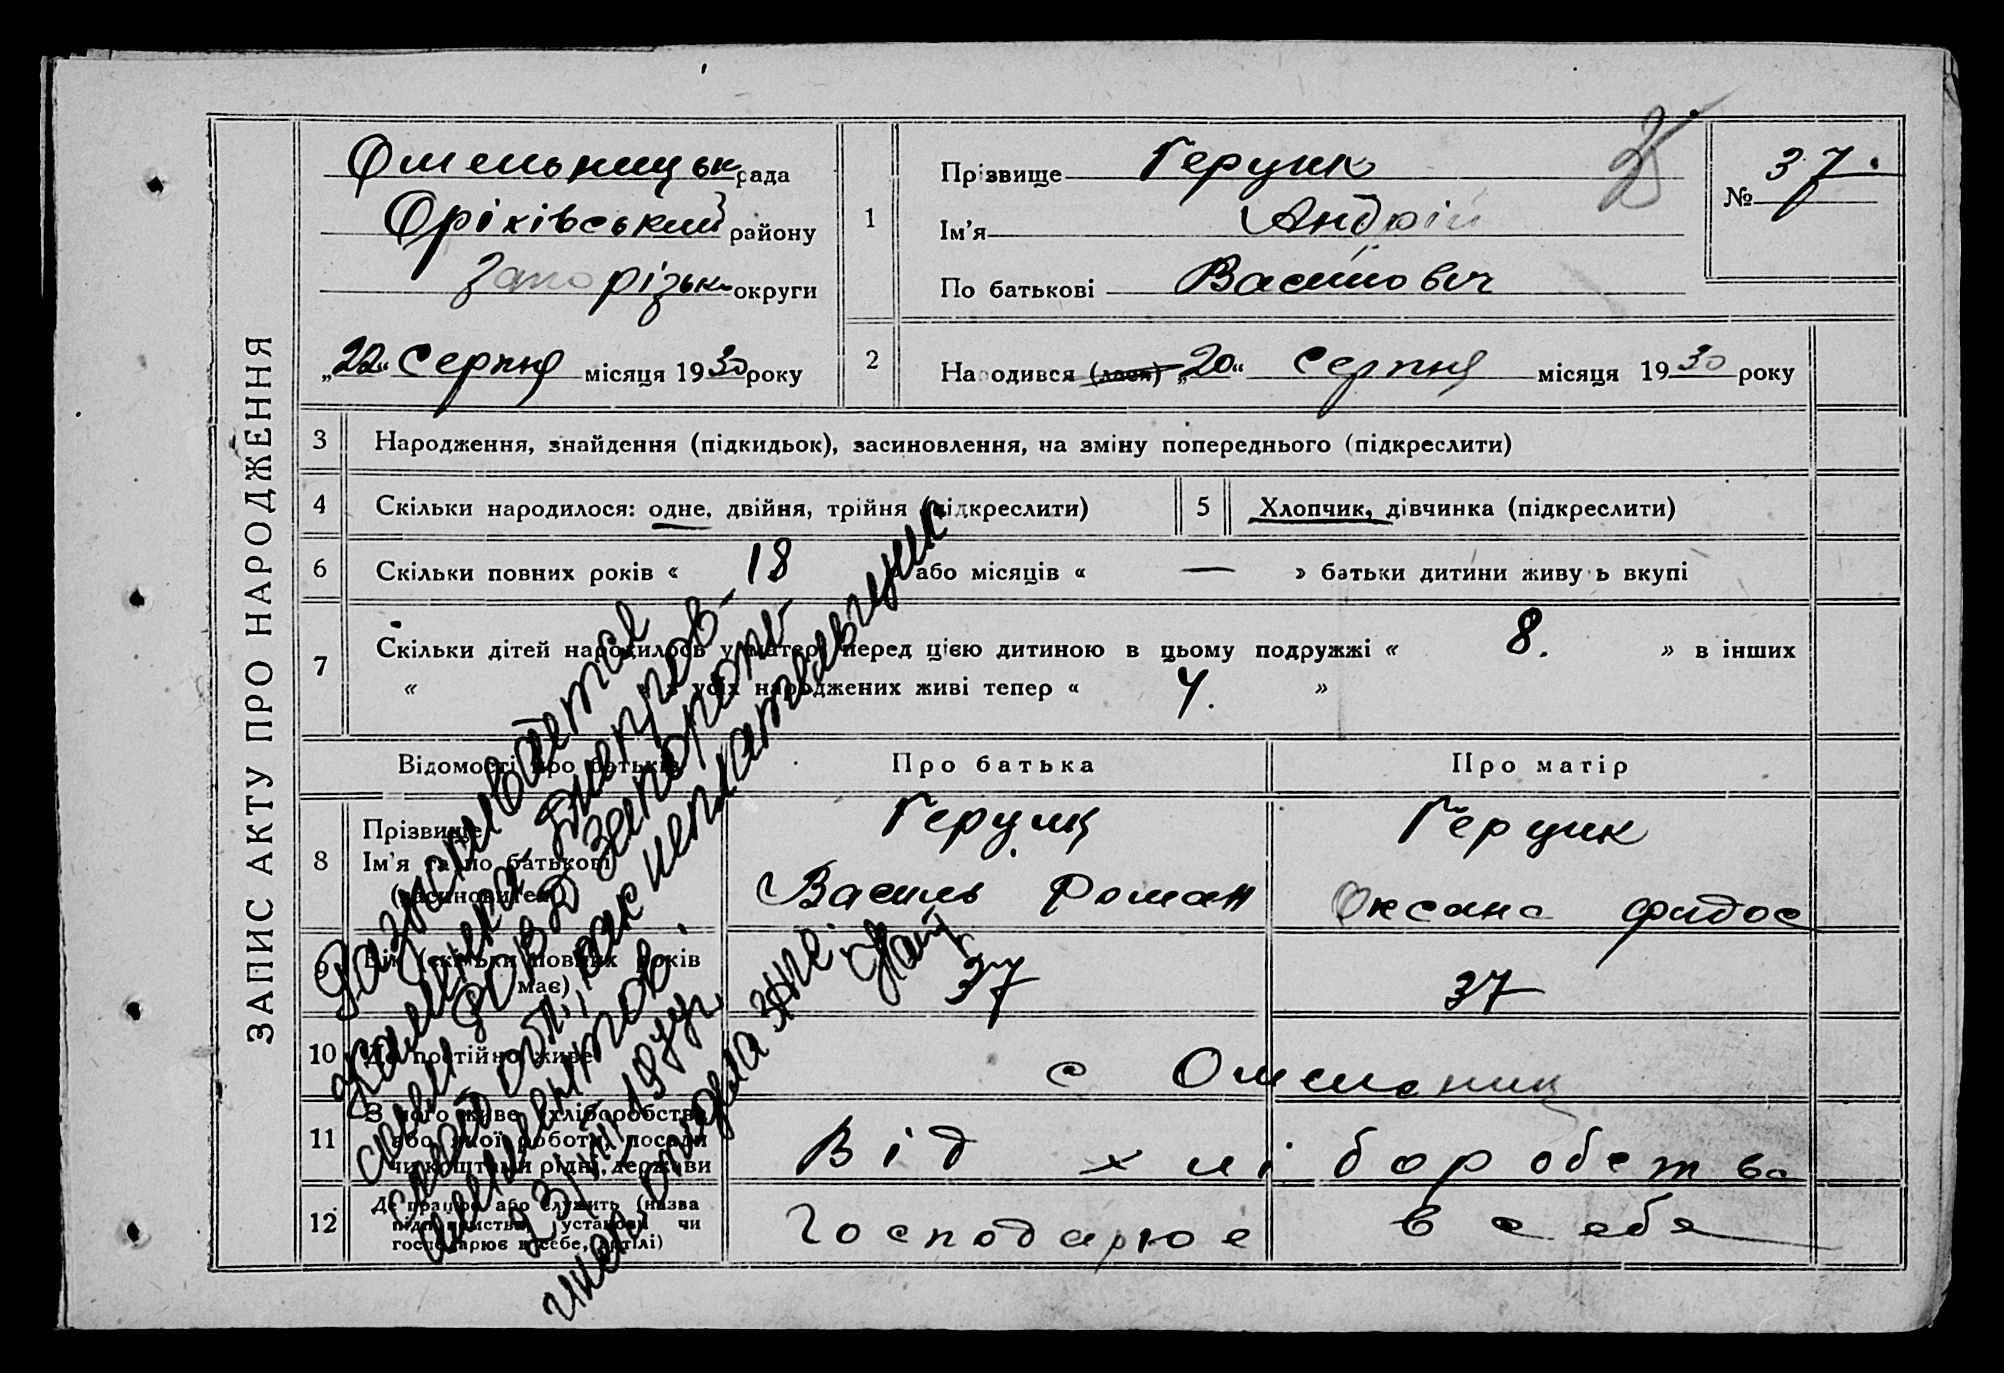 ЗАПИС АКТУ ПРО НАРОДЖЕННЯ
Омельницьк рада
Оріхівський району
Запорізьк округи
„22“ Серпня місяця 1930 року
1
Прізвище Герцик
Ім'я Андрій
По батькові Васильович
№ 37.
2
Народився (лась) „20“ Серпня місяця 1930 року
3 Народження, знайдення (підкидьок), засиновлення, на зміну попереднього (підкреслити)
4 Скільки народилося: одне, двійня, трійня (підкреслити)
5 Хлопчик, дівчинка (підкреслити)
6 Скільки повних років « 18 » або місяців « — » батьки дитини живуть вкупі
7 Скільки дітей народилось у матері перед цією дитиною в цьому подружжі « 8. » в інших
« » з усіх народжених живі тепер « 4. »
Відомості про батьків
Про батька
Про матір
8 Прізвище
Ім'я та по батькові
(засиновителя)
Герцик
Василь Роман
Герцик
Оксана Фидос
9 Вік (скільки повних років
має)
37
37
10 Де постійно живе
с Омельник
11 З чого живе (хліборобства
або якої роботи, посади
чи коштами рідні, держави
Від хліборобства
12 Де працює або служить (назва
підприємства, установи чи
господарює в себе, артілі)
Господарює в себе
Разыскивается
Днепров-
Запорож-
как неплательщик
алиментов.
инсп. отдела ЗАГС